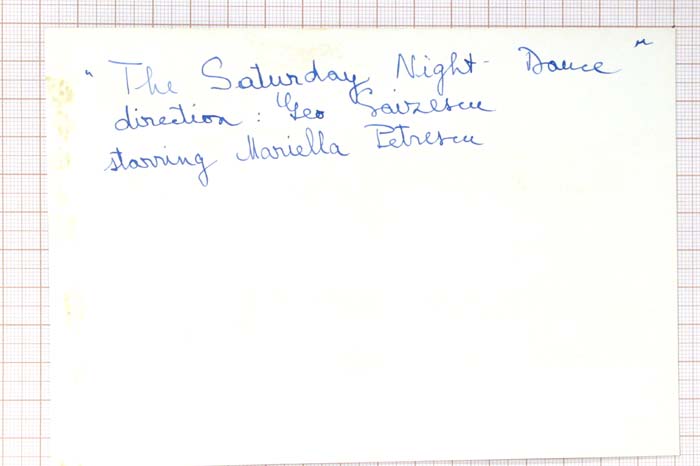 "The Saturday Night-Dance"
direction: Geo Saizescu
starring Mariella Petrescu